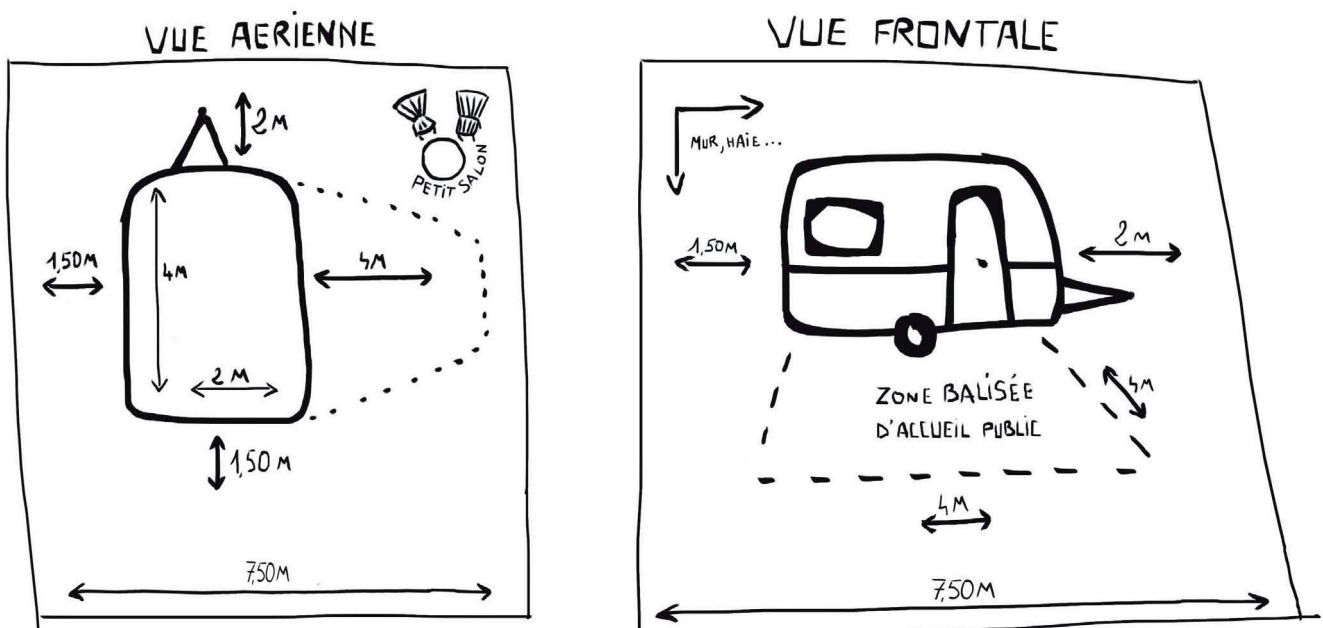 VUE AERIENNE
2M
PETIT SALON
1,50M
4M
4M
2 M
1,50 M
7,50M
VUE FRONTALE
MUR, HAIE...
1,50M
2M
ZONE BALISÉE
D'ACCUEIL PUBLIC
4M
4M
7,50M